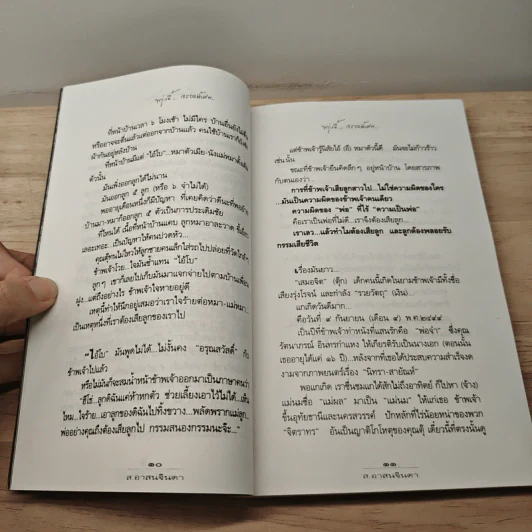 พรุ่งนี้...
ที่หน้าบ้านเวลา ๖ โมงเช้า ไม่มีใคร บ้านอื่นยังไม่ตื่น
หรืออาจจะตื่นแล้วแต่ออกจากบ้านแล้ว คนใช้บ้านเราก็ยัง
ผ้ากันอยู่หลังบ้าน
ที่หน้าบ้านมีแต่ "ไอ้โบ"...หมาตัวเมีย-นังแม่หมาตั้งเดิม
ตัวนั้น
มันเพิ่งออกลูกได้ไม่นาน
มันออกลูก ๕ ลูก (หรือ ๖ จำไม่ได้)
พออายุเดือนหนึ่งก็มีปัญหา ที่เคยคิดว่าดีนะที่พอย้าย
บ้านมา-หมาก็ออกลูก ๕ ตัวเป็นการประเดิมชัย
ที่ไหนได้ เมื่อที่หน้าบ้านแคบ ลูกหมาอาละวาด ขี้เยี่ยว
เลอะเทอะ...เป็นปัญหาให้คนปวดหัว...
คุณตุ๊ทนไม่ไหวให้ลูกชายคนเล็กใส่รถไปปล่อยที่วัดใกล้ๆ
ข้าพเจ้าโวย...ใจมันช้ำแทน "ไอ้โบ"
ลูกๆ เขาก็เลยไปเก็บมันมาแจกจ่ายไปตามบ้านเพื่อน
ฝูง...แต่ถึงอย่างไร ข้าพเจ้าหายอยู่ดี
เหตุนี้ทำให้นึกอยู่เสมอว่าเราใจร้ายต่อหมา-แม่หมา...
เป็นเหตุหนึ่งที่เราต้องเสียลูกของเราไป
"ไอ้โบ" มันพูดไม่ได้...ไม่งั้นคง "อรุณสวัสดิ์" กับ
ข้าพเจ้าไปแล้ว
หรือไม่มันก็จะสมน้ำหน้าข้าพเจ้าออกมาเป็นภาษาคนว่า
"ฮึไฮ่...ลูกดิฉันแค่ห้าหกตัว ช่วยเลี้ยงเอาไว้ไม่ได้...เห็น
ไหม...ใจร้าย...เอาลูกของดิฉันไปทิ้งขว้าง...พลัดพรากแม่ลูก...
พ่ออย่างคุณถึงต้องเสียลูกไป กรรมสนองกรรมนะจ๊ะ..."
๑๐
ส.อาสนจินดา
พรุ่งนี้...
แต่ข้าพเจ้ารู้นิสัยไอ้ (อี) หมาตัวนี้ดี มันจะไม่ก้าวร้าว
เช่นนั้น
ขณะที่ข้าพเจ้ายืนคิดลึกๆ อยู่หน้าบ้าน โดยสารภาพ
กับตนเองว่า...
การที่ข้าพเจ้าเสียลูกสาวไป...ไม่ใช่ความผิดของใคร
...มันเป็นความผิดของข้าพเจ้าคนเดียว
ความผิดของ "พ่อ" ที่ไร้ "ความเป็นพ่อ"
คือเราเป็นพ่อที่ไม่ดี...เราจึงต้องเสียลูก...
เราเลว...แล้วทำไมต้องเสียลูก และลูกต้องพลอยรับ
กรรมเสียชีวิต
เรื่องมันยาว...
"เสมอจิต" (ตุ๊ก) เด็กคนนี้เกิดในยามข้าพเจ้ามีทั้งชื่อ
เสียงรุ่งโรจน์ และกำลัง "รวยวัตถุ" (เงิน)...
แกเกิดวันดีมาก...
คือวันที่ ๙ กันยายน (เดือน ๙) พ.ศ.๒๔๙๙
เป็นปีที่ข้าพเจ้าทำหนังที่แสนรักคือ "พ่อจ๋า" ซึ่งคุณ
รัตนาภรณ์ อินทรกำแหง ให้เกียรติรับเป็นนางเอก (ตอนนั้น
เธออายุได้แค่ ๑๖ ปี)...หลังจากที่เธอได้ประสบความสำเร็จงด
งามจากภาพยนตร์เรื่อง "นิทรา-สายัณห์"
พอแกเกิด เราชื่นชมแกได้สักไม่ถึงอาทิตย์ ก็ไปหา (จ้าง)
แม่นมชื่อ "แม่ผล" มาเป็น "แม่นม" ให้แก่เธอ ข้าพเจ้า
ขึ้นอุทัยธานีและนครสวรรค์ ปักหลักที่ไร่น้อยหน่าของพวก
"จิตราทร" อันเป็นญาติโกโหตุของคุณตุ๊ เดี๋ยวนี้ที่ตรงนั้นดู
๑๑
ส.อาสนจินดา